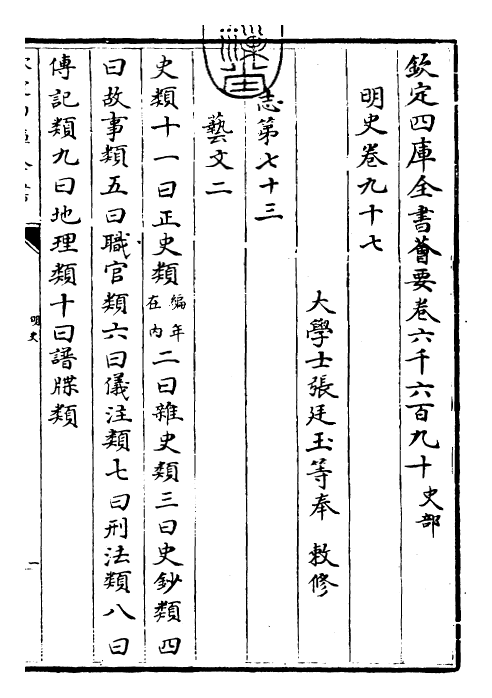 欽定四庫全書薈要卷六千六百九十 史部
明史卷九十七
大學士張廷玉等奉 敕修
志第七十三
藝文二
史類十一曰正史類 編年在内 二曰雜史類三曰史鈔類四
曰故事類五曰職官類六曰儀注類七曰刑法類八曰
傳記類九曰地理類十曰譜牒類
明史
一